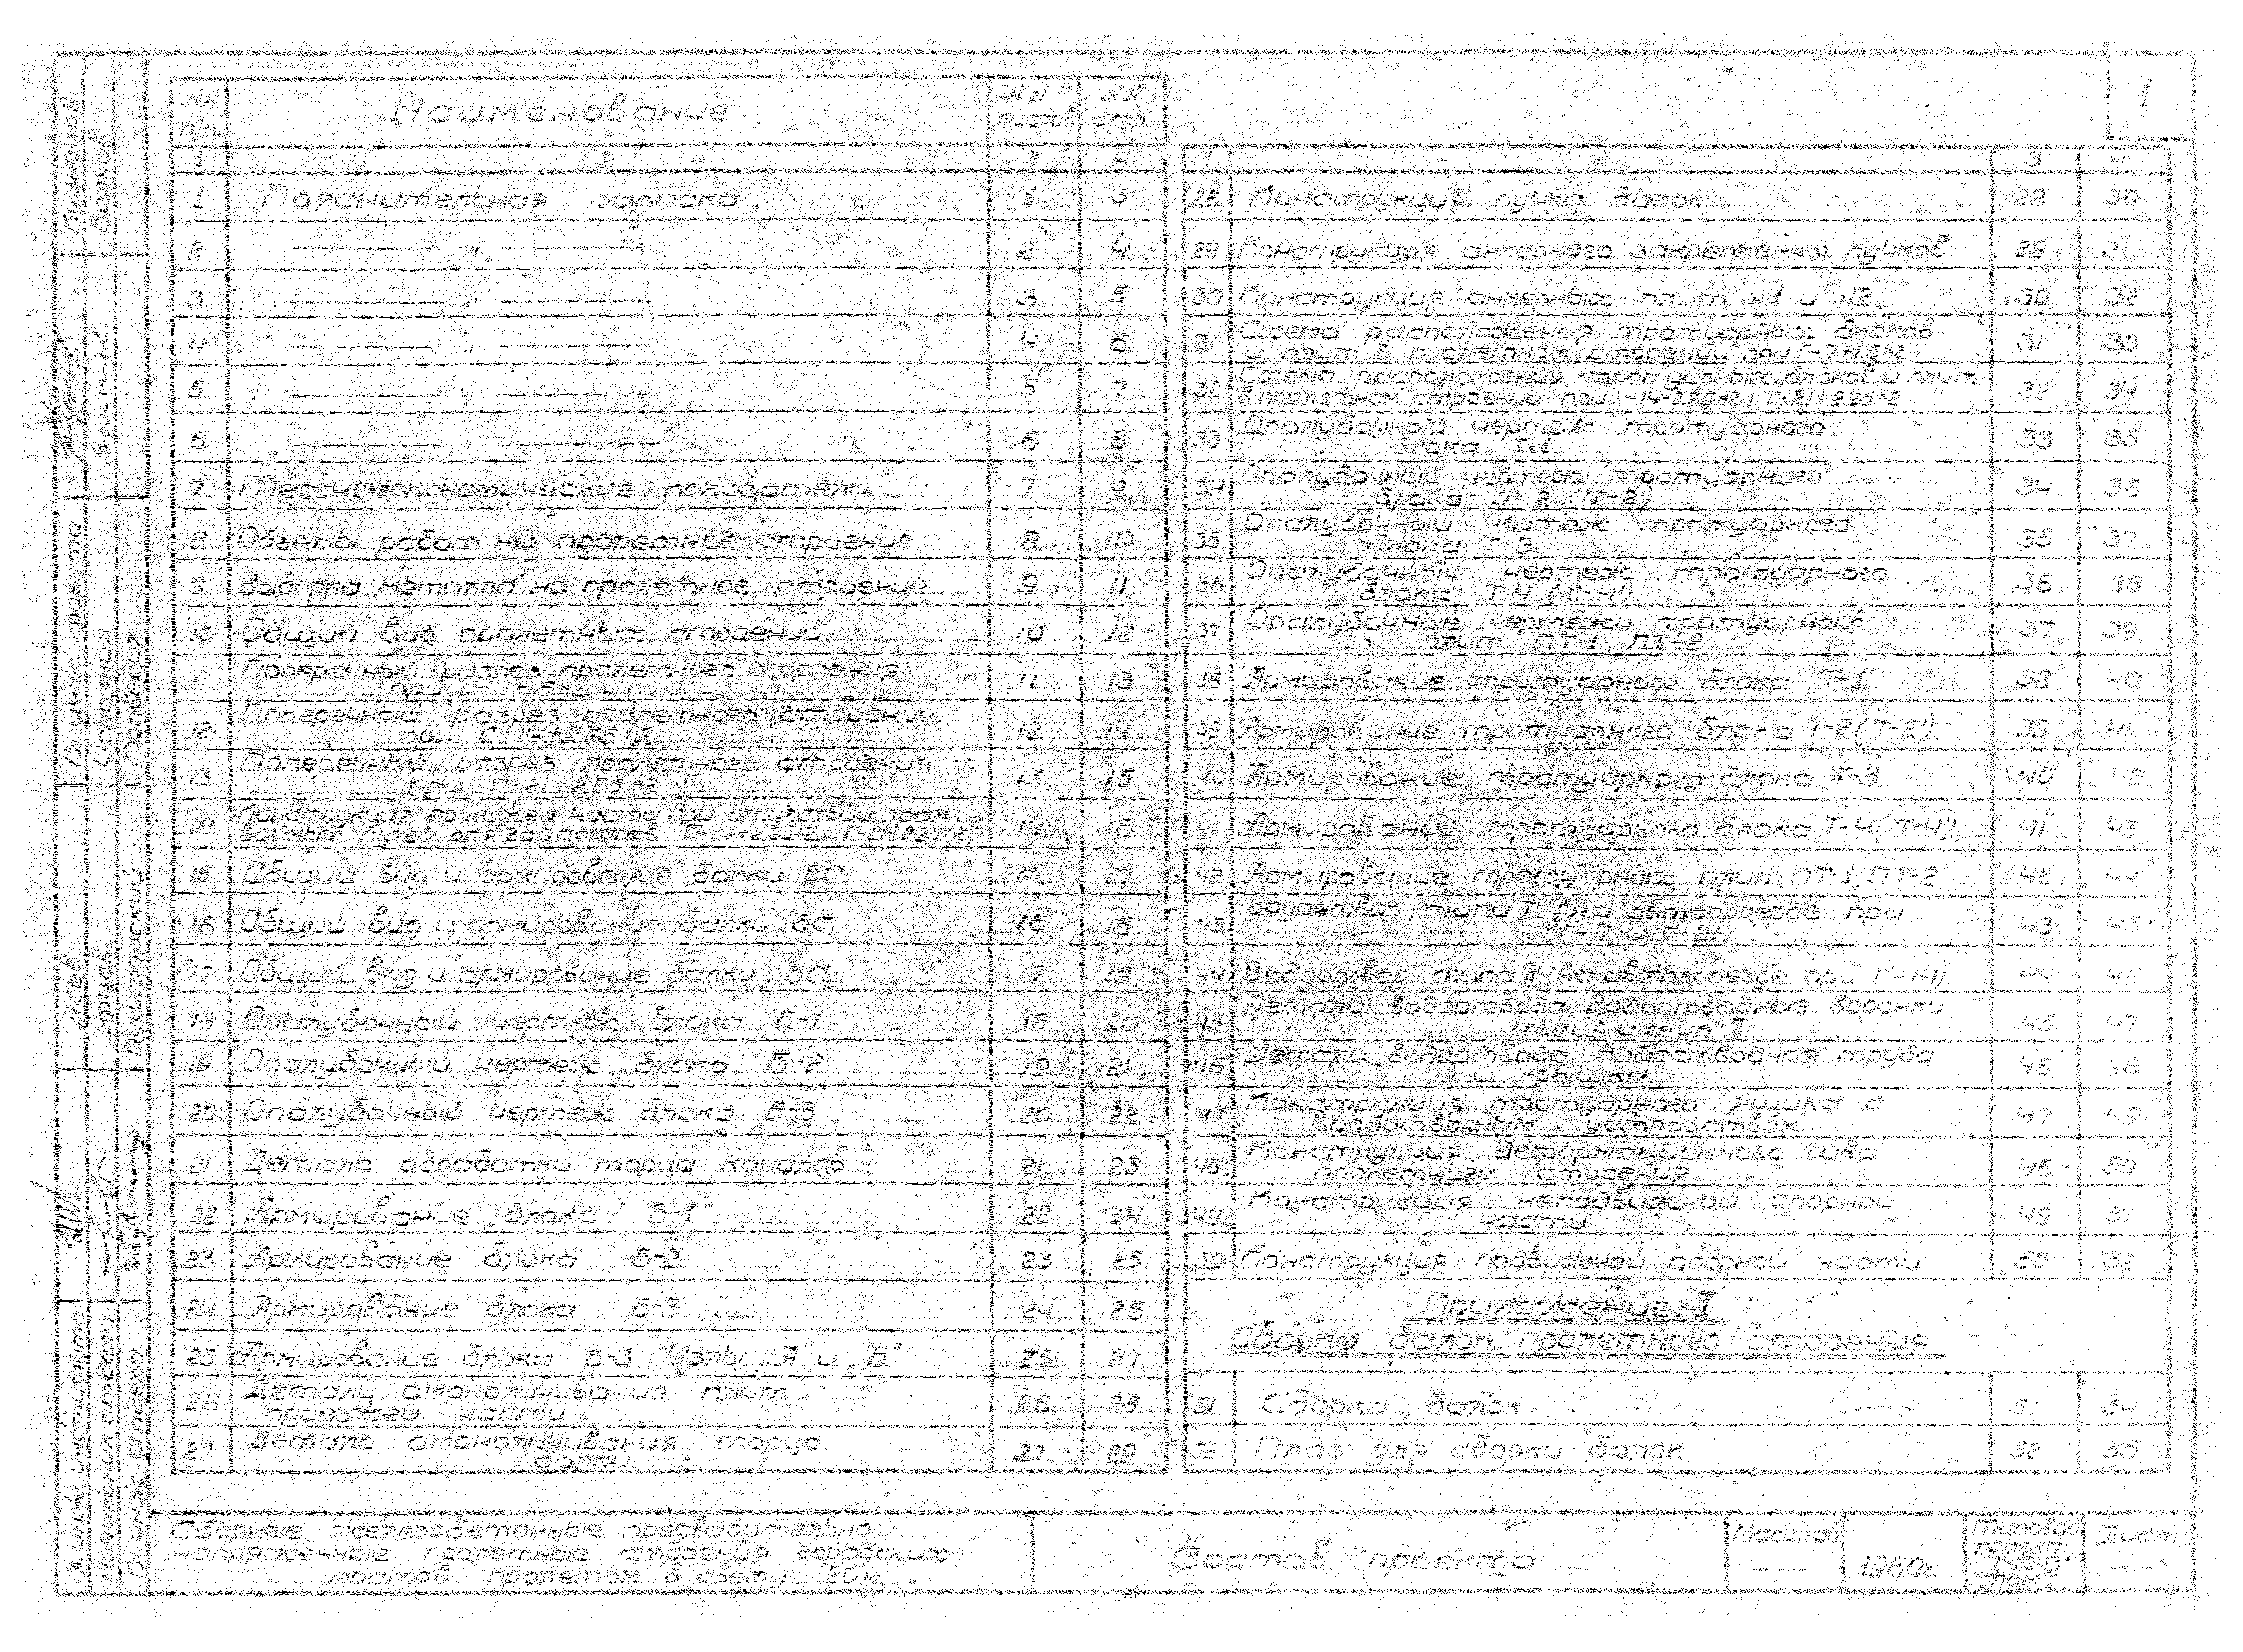 1
№№ п/п. Наименование №№ листов №№ стр.
1 2 3 4
1 Пояснительная записка 1 3
2 — „ — 2 4
3 — „ — 3 5
4 — „ — 4 6
5 — „ — 5 7
6 — „ — 6 8
7 Технико-экономические показатели 7 9
8 Объемы работ на пролетное строение 8 10
9 Выборка металла на пролетное строение 9 11
10 Общий вид пролетных строений 10 12
11 Поперечный разрез пролетного строения
при Г-7+1.5×2 11 13
12 Поперечный разрез пролетного строения
при Г-14+2.25×2 12 14
13 Поперечный разрез пролетного строения
при Г-21+2.25×2 13 15
14 Конструкция проезжей части при отсутствии трам-
вайных путей для габаритов Г-14+2.25×2 и Г-21+2.25×2 14 16
15 Общий вид и армирование балки БС 15 17
16 Общий вид и армирование балки БС₁ 16 18
17 Общий вид и армирование балки БС₂ 17 19
18 Опалубочный чертеж блока Б-1 18 20
19 Опалубочный чертеж блока Б-2 19 21
20 Опалубочный чертеж блока Б-3 20 22
21 Деталь обработки торца каналов 21 23
22 Армирование блока Б-1 22 24
23 Армирование блока Б-2 23 25
24 Армирование блока Б-3 24 26
25 Армирование блока Б-3 Узлы „А" и „Б" 25 27
26 Детали омоноличивания плит
проезжей части 26 28
27 Деталь омоноличивания торца
балки 27 29
1 2 3 4
28 Конструкция пучка балок 28 30
29 Конструкция анкерного закрепления пучков 29 31
30 Конструкция анкерных плит №1 и №2 30 32
31 Схема расположения тротуарных блоков
и плит в пролетном строении при Г-7+1.5×2 31 33
32 Схема расположения тротуарных блоков и плит
в пролетном строении при Г-14-2.25×2; Г-21+2.25×2 32 34
33 Опалубочный чертеж тротуарного
блока Т-1 33 35
34 Опалубочный чертеж тротуарного
блока Т-2 (Т-2') 34 36
35 Опалубочный чертеж тротуарного
блока Т-3 35 37
36 Опалубочный чертеж тротуарного
блока Т-4 (Т-4') 36 38
37 Опалубочные чертежи тротуарных
плит ПТ-1, ПТ-2 37 39
38 Армирование тротуарного блока Т-1 38 40
39 Армирование тротуарного блока Т-2 (Т-2') 39 41
40 Армирование тротуарного блока Т-3 40 42
41 Армирование тротуарного блока Т-4 (Т-4') 41 43
42 Армирование тротуарных плит ПТ-1, ПТ-2 42 44
43 Водоотвод типа I (на автопроезде при
Г-7 и Г-21) 43 45
44 Водоотвод типа II (на автопроезде при Г-14) 44 46
45 Детали водоотвода. Водоотводные воронки
тип I и тип II 45 47
46 Детали водоотвода. Водоотводная труба
и крышка 46 48
47 Конструкция тротуарного ящика с
водоотводным устройством 47 49
48 Конструкция деформационного шва
пролетного строения. 48 50
49 Конструкция неподвижной опорной
части 49 51
50 Конструкция подвижной опорной части 50 52
Приложение-I
Сборка балок пролетного строения
51 Сборка балок 51 54
52 Плаз для сборки балок 52 55
Кузнецов
Волков
Гл. инж. проекта
Исполнил
Проверил
Деев
Ярцев
Пушторский
Гл. инж. института
Начальник отдела
Гл. инж. отдела
Сборные железобетонные предварительно
напряженные пролетные строения городских
мостов пролетом в свету 20м.
Состав проекта
Масштаб
—
1960г.
Типовой
проект
Т-1043
том II
Лист
—